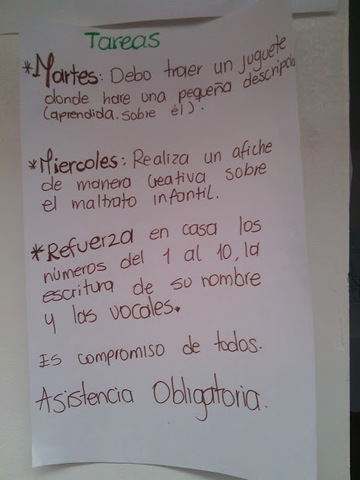 Tareas
*Martes: Debo traer un juguete
donde hare una pequeña descripción
(aprendida sobre él).
*Miercoles: Realiza un afiche
de manera creativa sobre
el maltrato infantil.
*Refuerza en casa los
números del 1 al 10, la
escritura de su nombre
y las vocales.
Es compromiso de todos.
Asistencia Obligatoria.